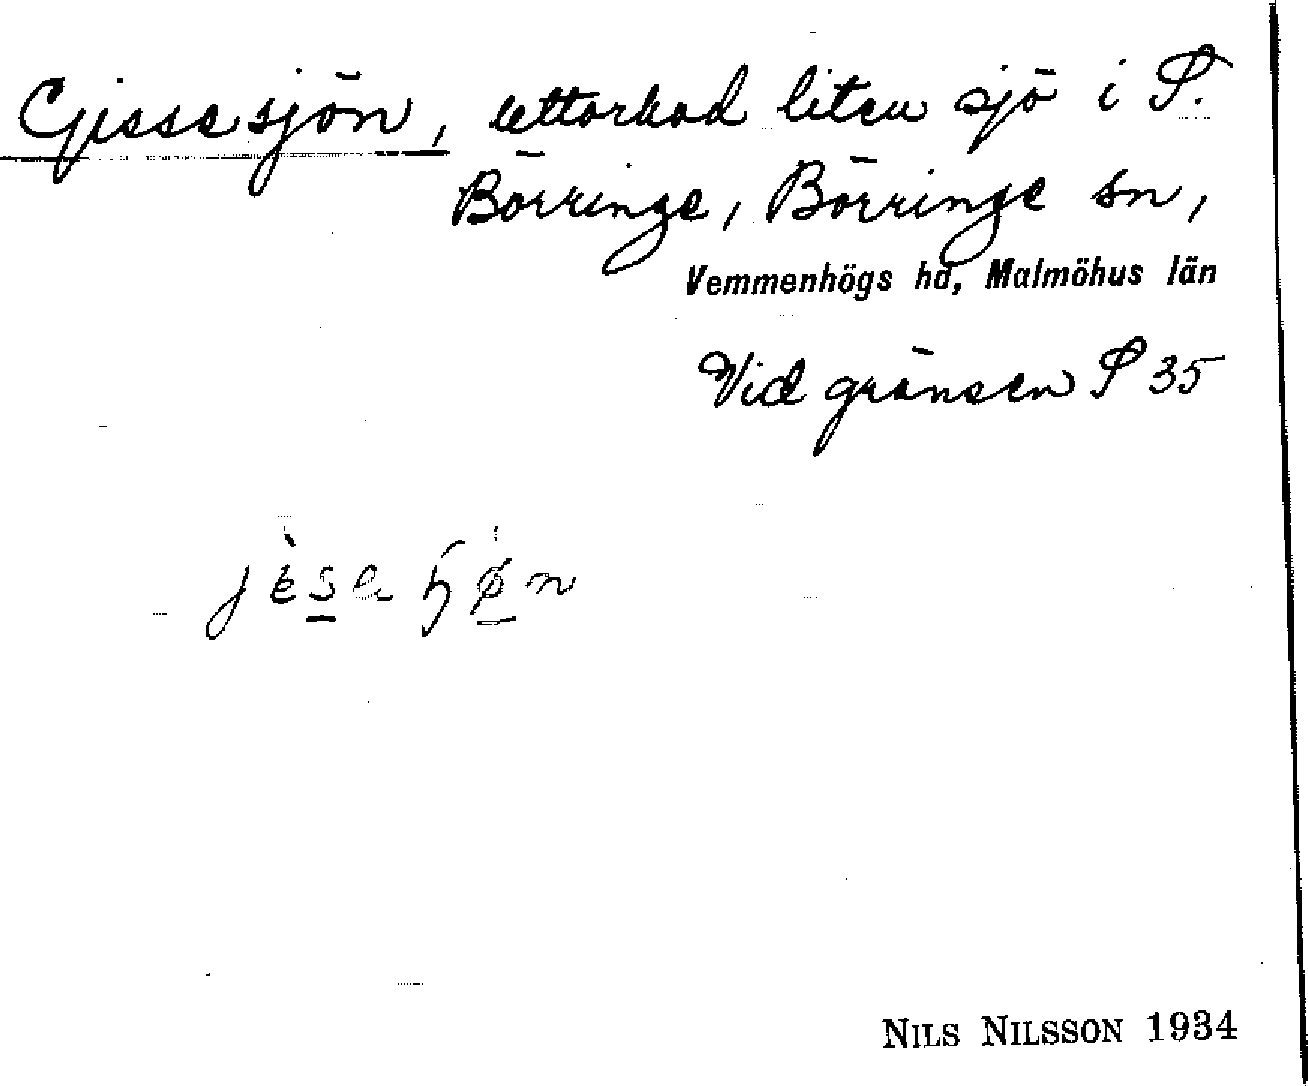 Gissesjön, uttorkad liten sjö i S.
Börringe, Börringe sn,
Vemmenhögs hd, Malmöhus län
Vid gränsen S 35
NILS NILSSON 1934